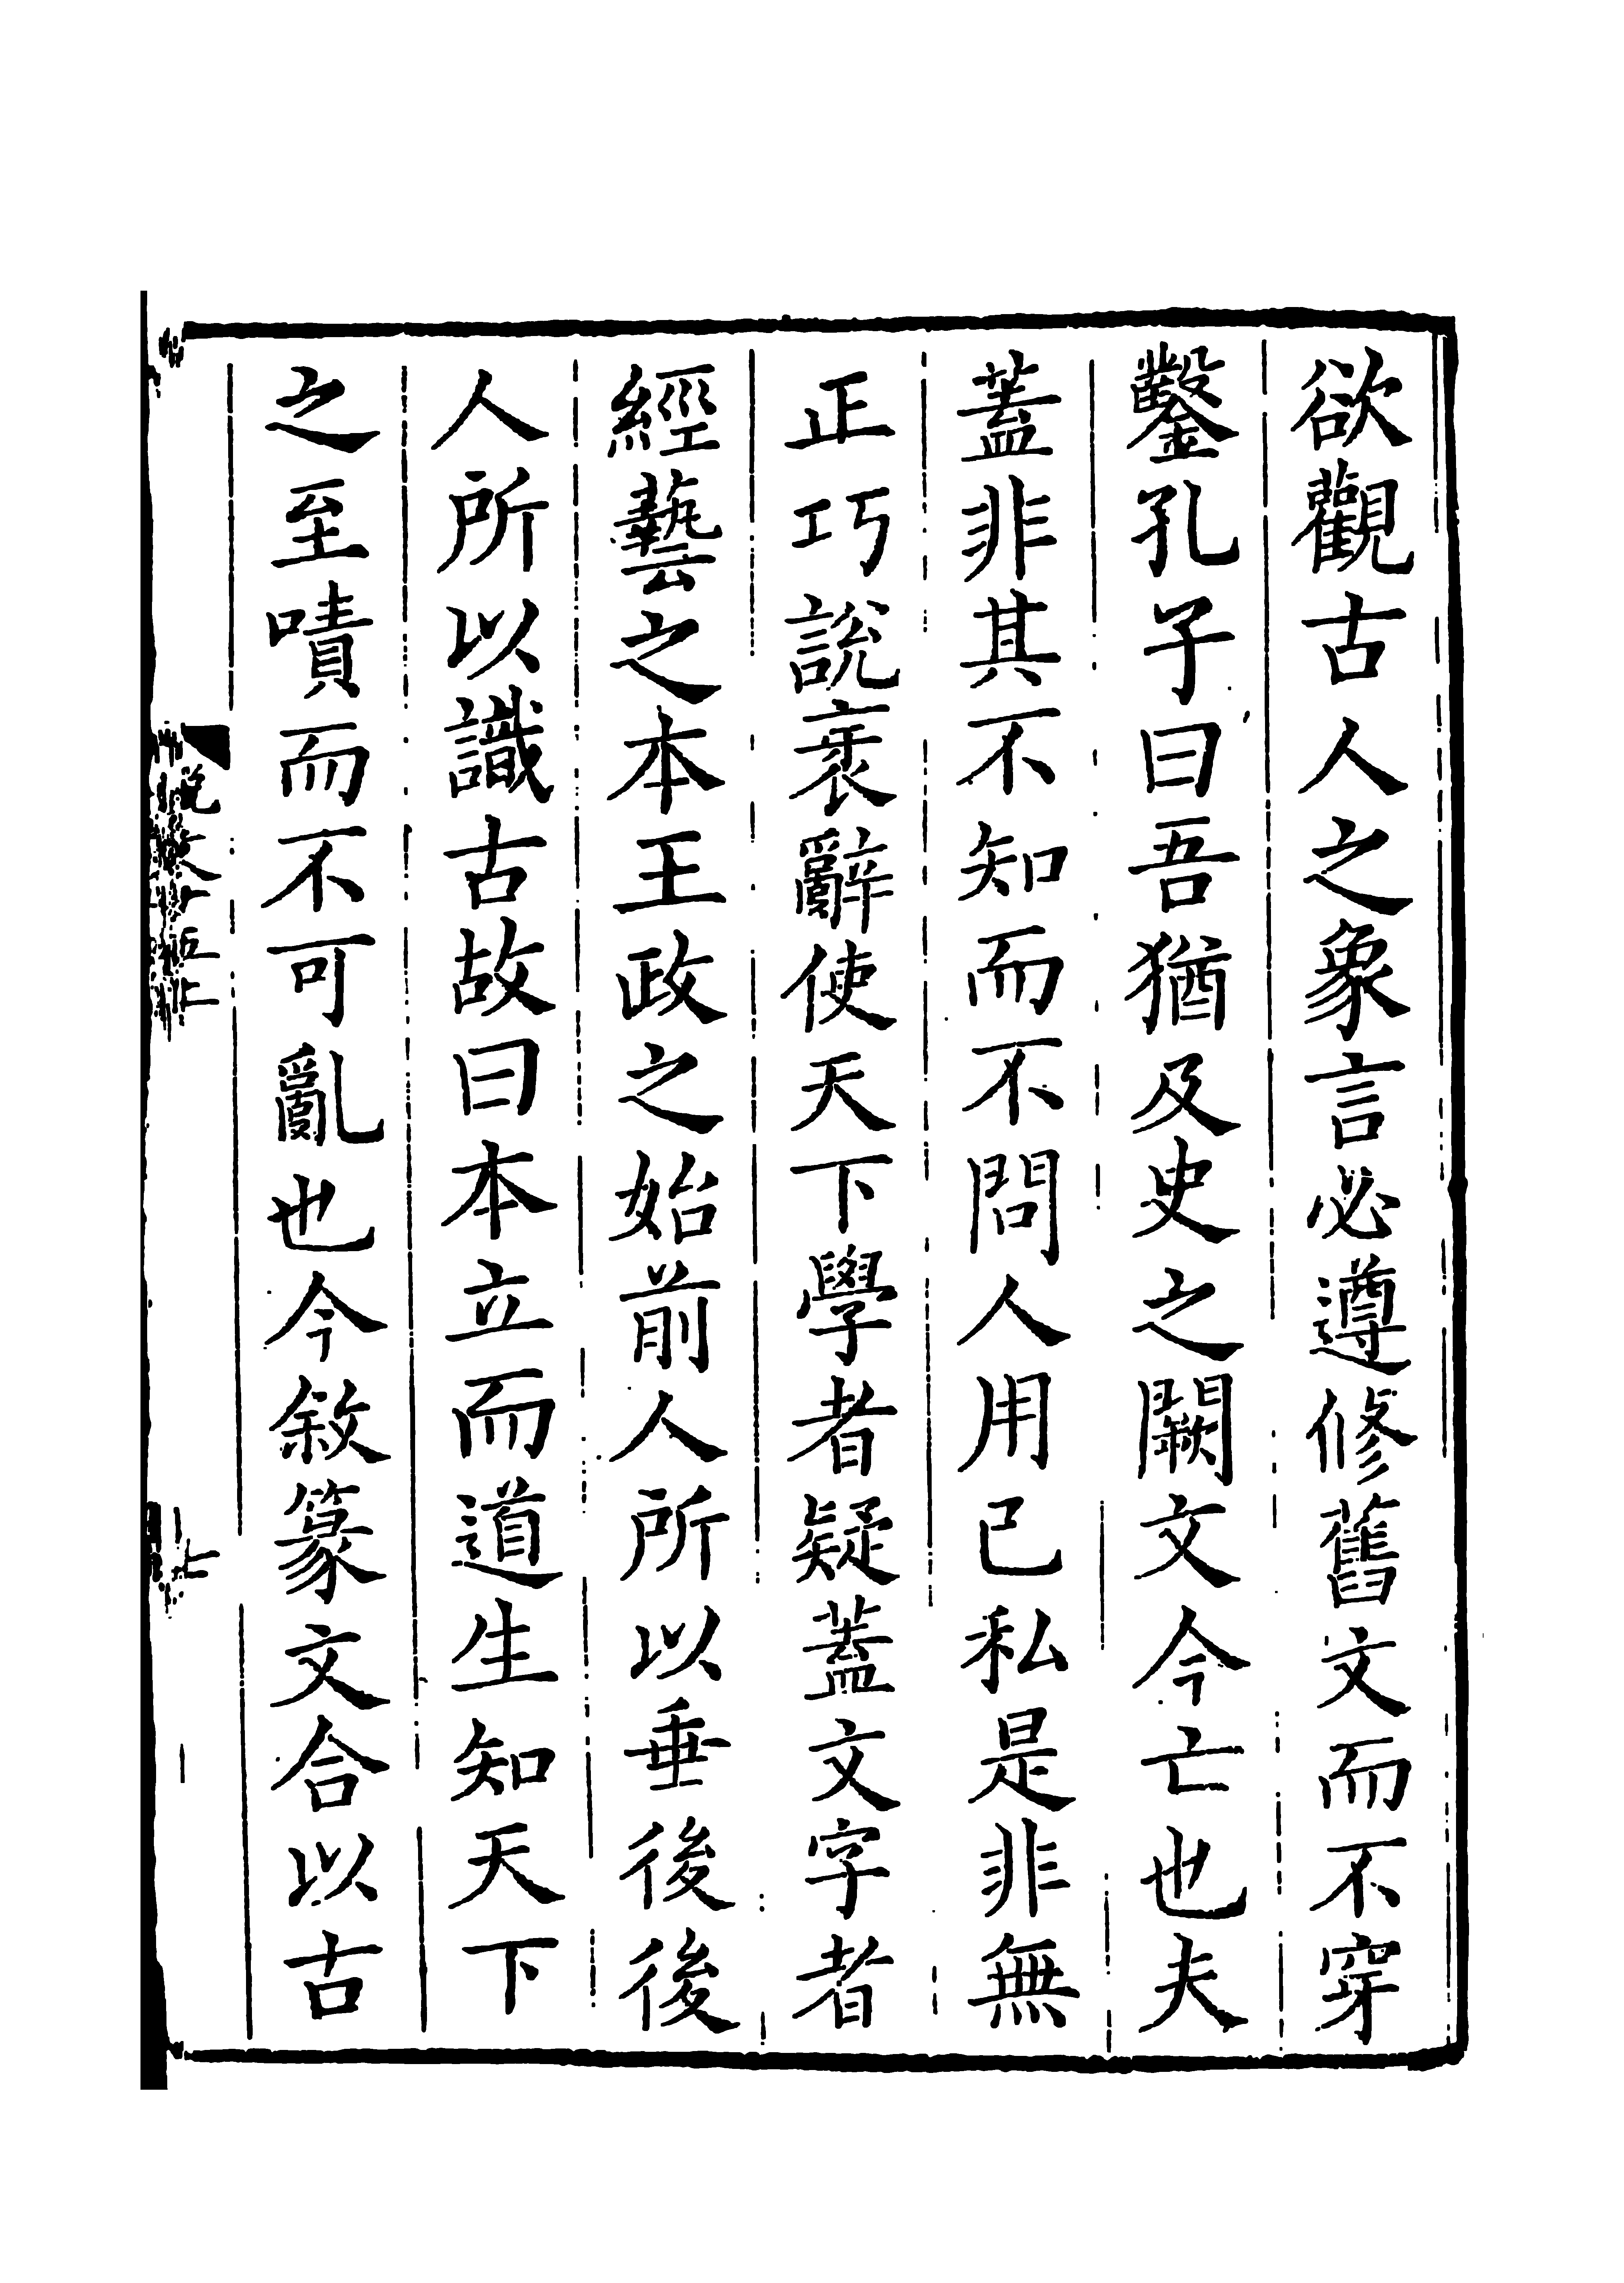 欲觀古人之象言必遵修舊文而不穿
鑿孔子曰吾猶及史之闕文今亡也夫
蓋非其不知而不問人用己私是非無
正巧說衺辭使天下學者疑蓋文字者
經藝之本王政之始前人所以垂後後
人所以識古故曰本立而道生知天下
之至嘖而不可亂也今敘篆文合以古